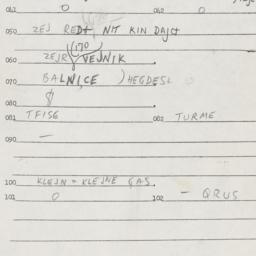 061 O 062 O
050 ZEJ REDT, NIT KIN DAJCH
(170)
060 ZEJR VEJNIK
070 BALNICE ) HEGDESL
080
081 TFISE 082 TURME
090 —
100 KLEJN = KLEJNE GAS
101 O 102 — QRUS